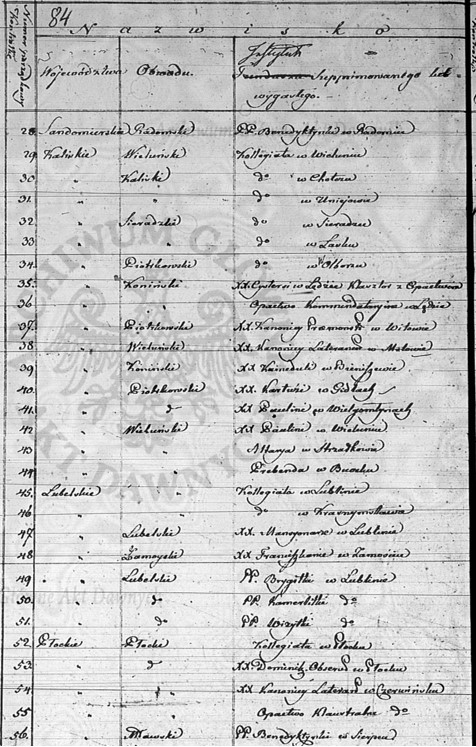 84
Numer porządkowy
Nazwisko
Instytut
Województwa Obwodu. Fundusza Suppimowanego lub
wygasłego.
28 Sandomierskie Radomski PP. Benedyktynki w Radomiu
29 Kaliskie Wieluński Kollegiata w Wieluniu
30 " Kaliski do w Choczu
31. " " do w Uniejowie
32 " Sieradzki do w Sieradzu
33 " " do w Łasku
34 " Piotrkowski do
35. " Koniński XX. Cystersi w Lędzie Klasztor z Opactwem
36 " " Opactwo Kommendatoryjne w Lędzie
37. " Piotrkowski XX. Kanonicy Premonst: w Witowie
38 " Wieluński XX. Kanonicy Laterane: w Mstowie
39 " Koniński XX Kameduli w Bieniszewie
40. " Piotrkowski XX. Kartuzi w Gidlach
41. " do XX Paulini w Wielgomłynach
42 " Wieluński XX Paulini w Wieluniu
43 " " Altarya w
44 " " Prebenda w
45. Lubelskie " Kollegiata w Lublinie
46 " " do w Krasnymstawie
47. " Lubelski XX. Mansyonarze w Lublinie
48 " Zamoyski XX Franciszkanie w Zamościu
49 " Lubelski PP. Brygitki w Lublinie
50. " do PP. Karmelitki do
51. " do PP. Wizytki do
52. Płockie Płocki Kollegiata w Płocku
53. " do XX Dominik. Obserw w Płocku
54 " " XX Kanonicy Lateran w Czerwińsku
55 " " Opactwo Klaustralne do
56. " Mławski PP. Benedyktynki w Sierpcu